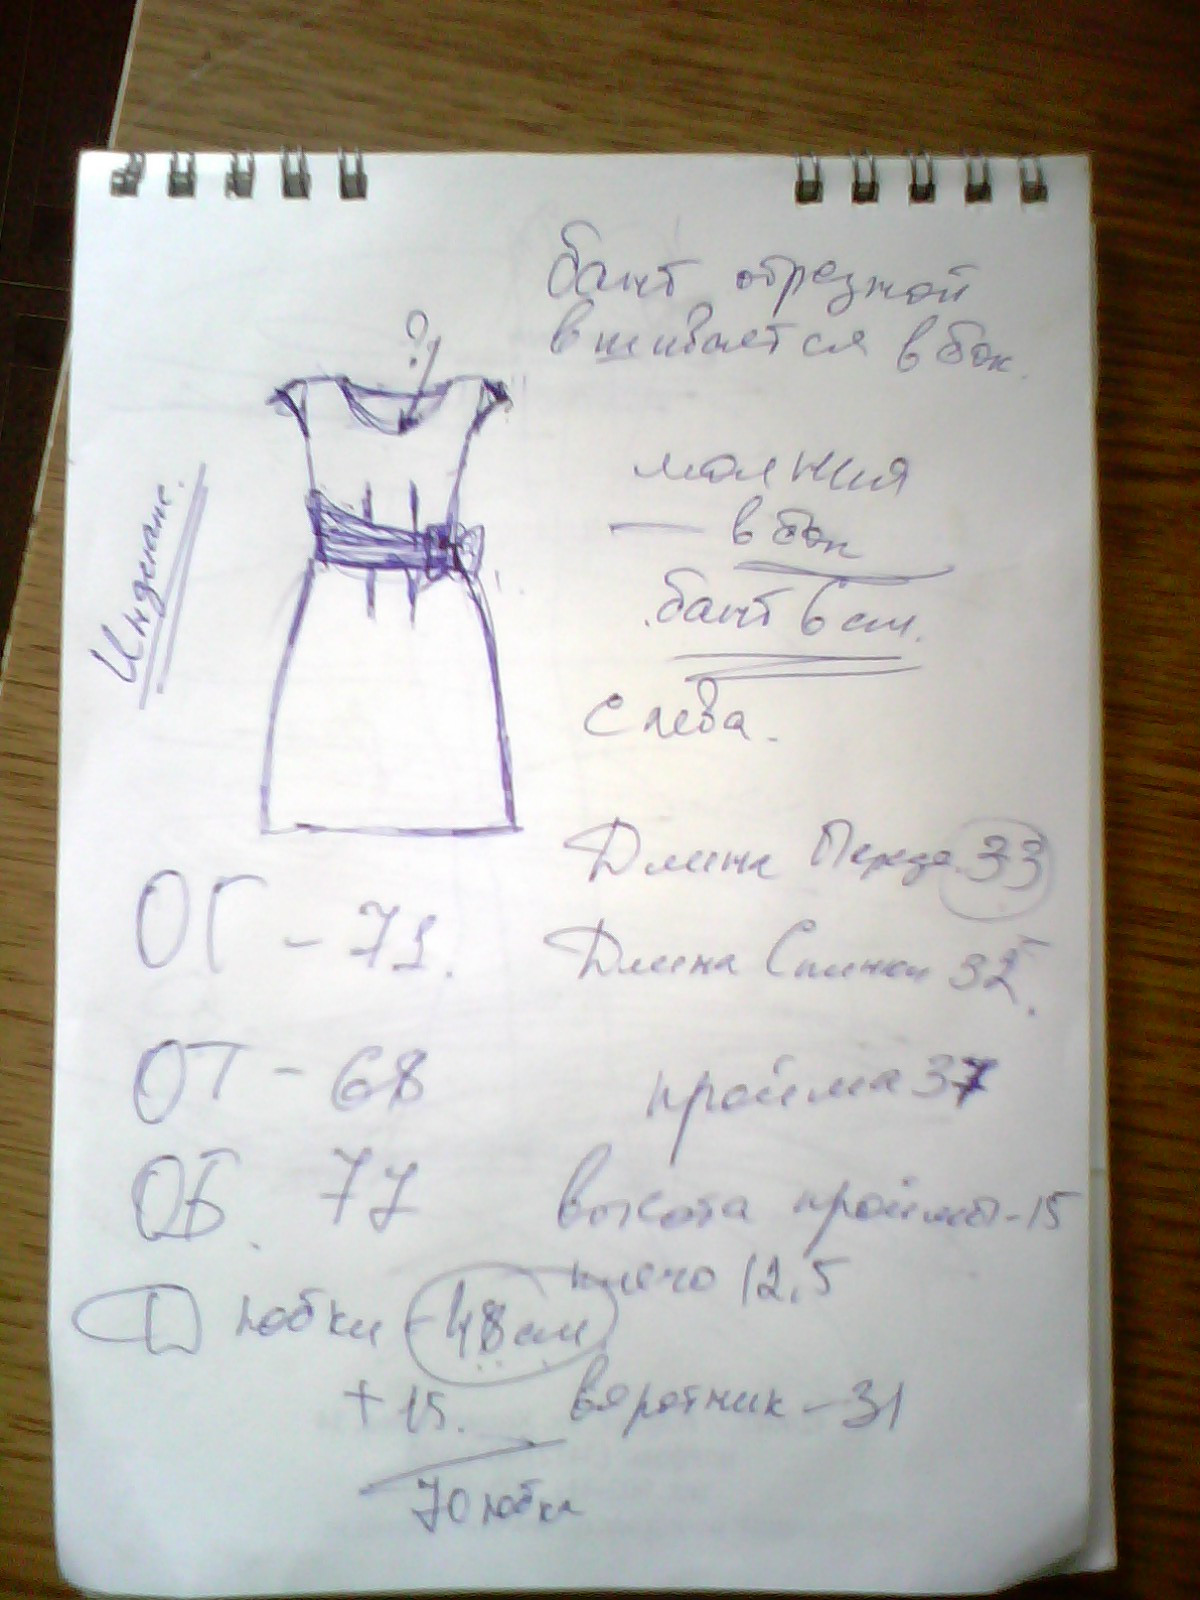 бант отрезной
вшивается в бок.
?
молния
— в бок
бант 6 см.
слева.
Длина Переда 33
ОГ - 71.
Длина Спинки 32
ОТ - 68
пройма 37
ОБ. 77
высота проймы - 15
плечо 12,5
Д юбки - 48 см
+ 15.
воротник - 31
70 юбка